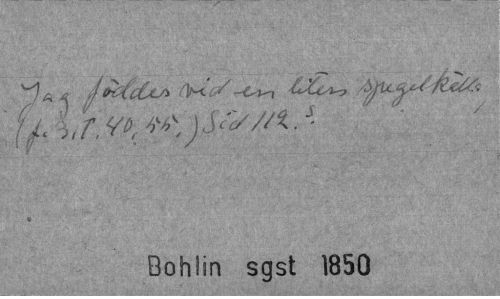 Jag föddes vid en liten spegelkälla,
(f. 3, T. 40, 55.) Sid 112. s.
Bohlin sgst 1850